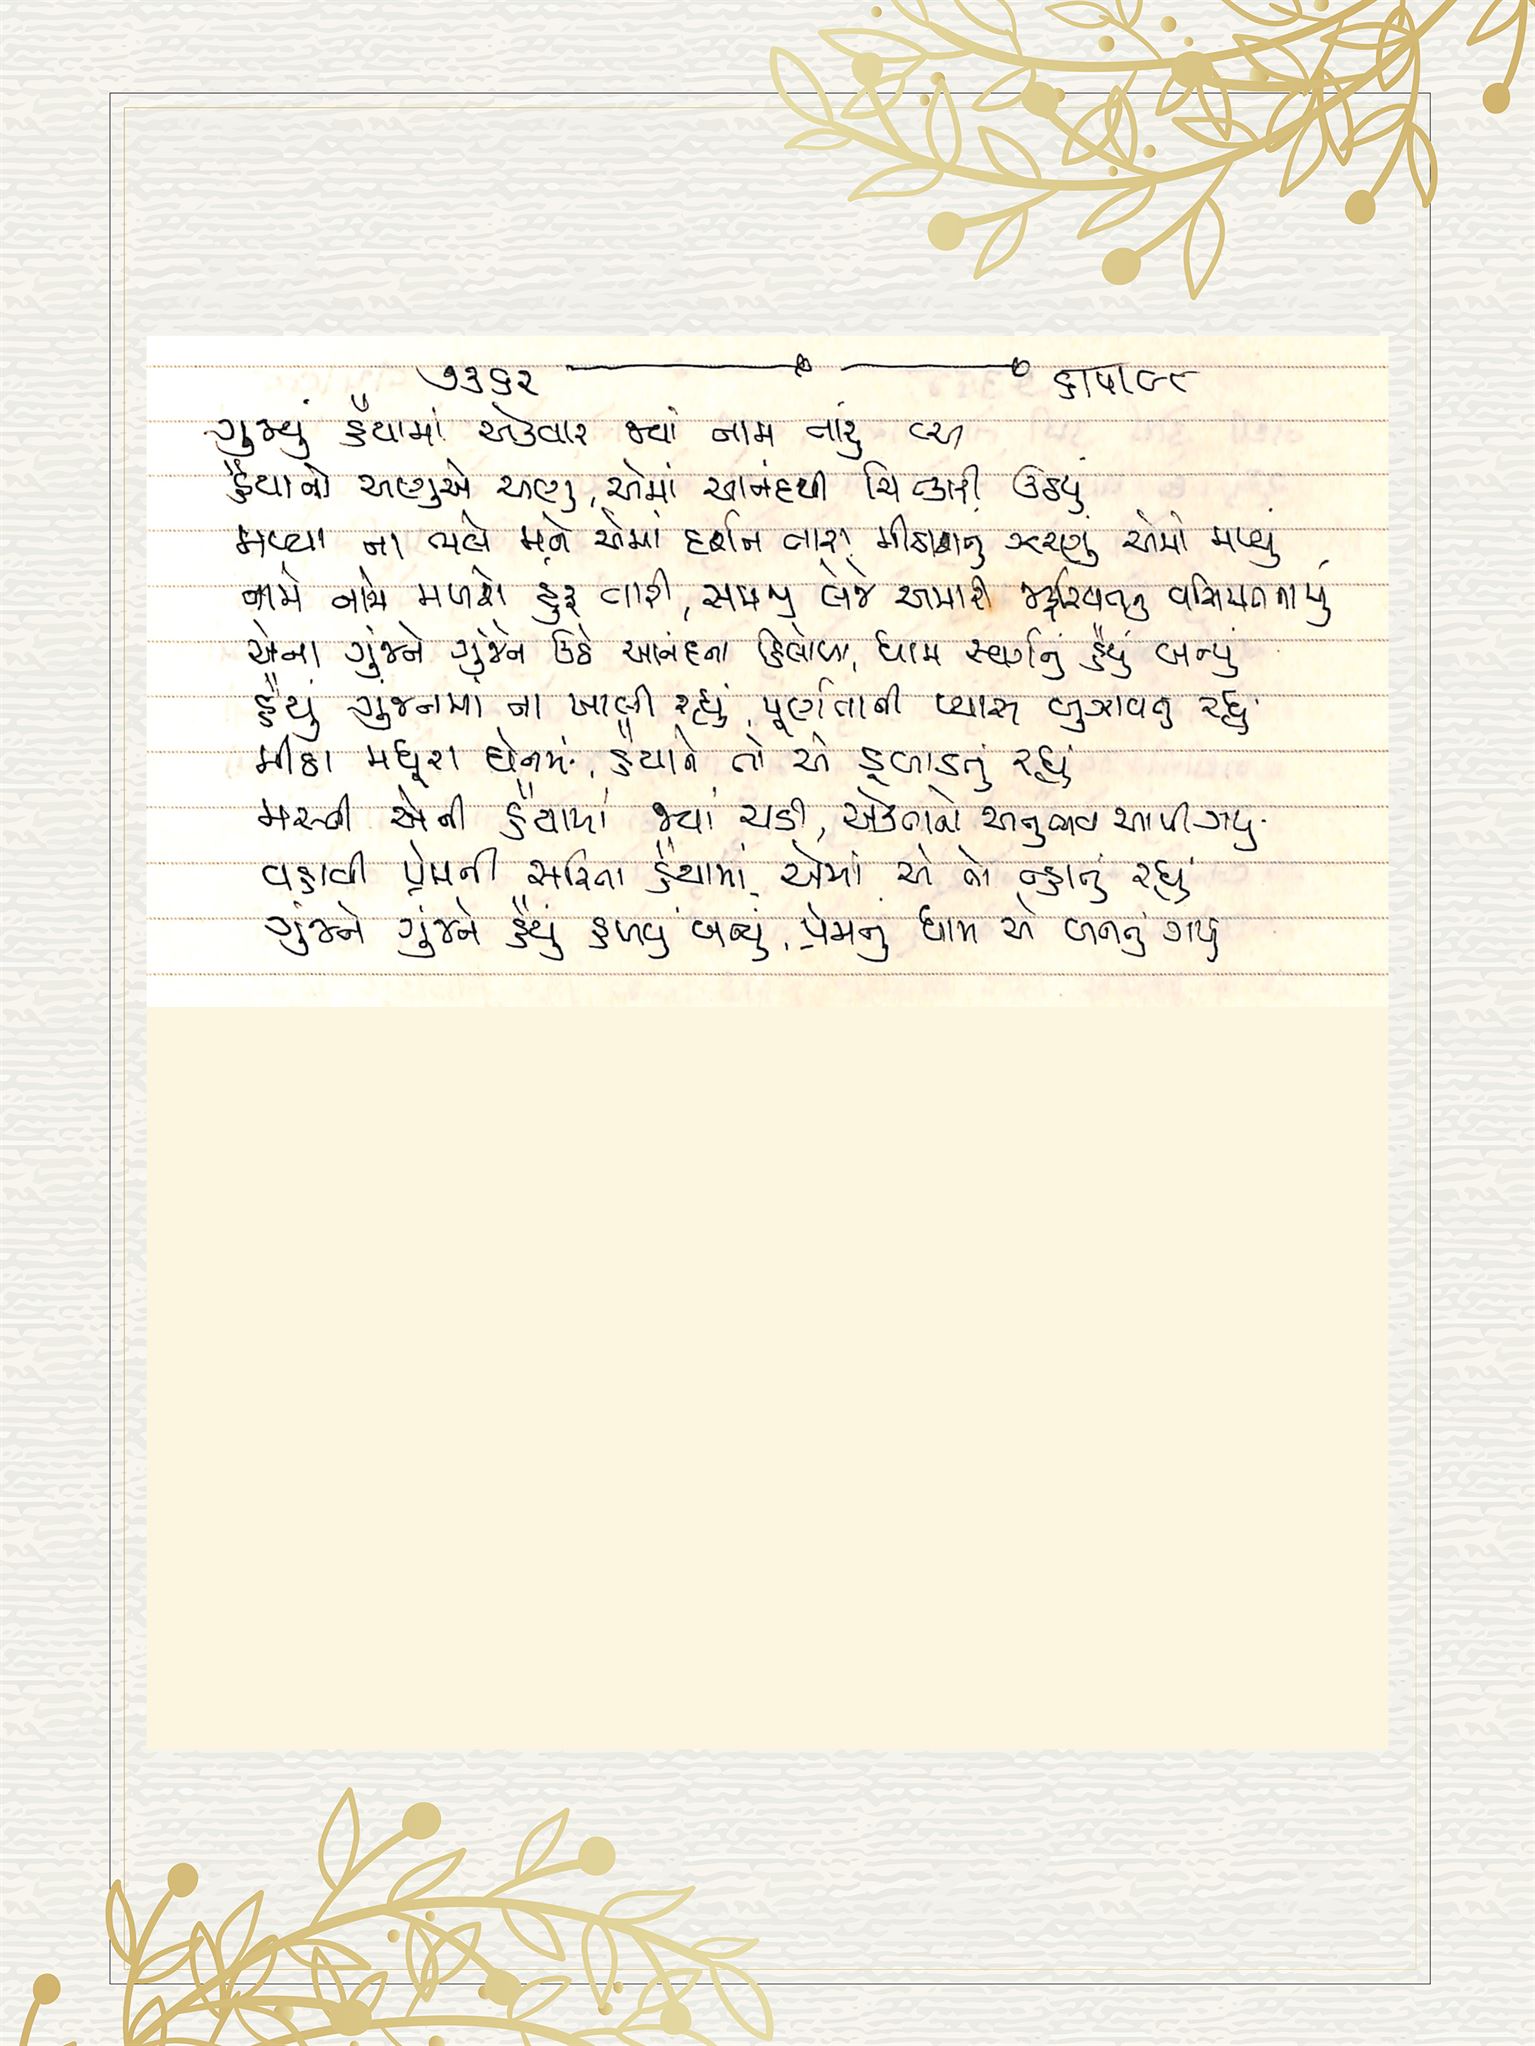 ૭૩૬૨
ગુંજ્યું હૈયામાં એકવાર જ્યાં નામ તારું
હૈયાનો અણુએ અણુ, એમાં આનંદથી ચિત્કારી ઉઠયું
મળ્યા ના ભલે મને એમાં દર્શન તારા, મીઠાશનું ઝરણું એમાં મળ્યું
નામે નામે મળશે હુંફ તારી, સમજી લેજે અમારી
એના ગુંજને ગુંજને ઉઠે આનંદના કિલોળા, ધામ સ્વર્ગનું હૈયું બન્યું
હૈયું ગુંજનમાં ના ખાલી રહ્યું, પૂર્ણતાની પ્યાસ બુઝાવતું રહ્યું
મીઠા મધૂરા ઘેનમાં, હૈયાને તો એ ડૂબાડતું રહ્યું
મસ્તી એની હૈયામાં જ્યાં ચડી, એકતાનો અનુભવ આપી ગયું
વહાવી પ્રેમની સરિતા હૈયામાં, એમાં એ તો ન્હાતું રહ્યું
ગુંજને ગુંજને હૈયું હળવું બન્યું, પ્રેમનું ધામ એ બનતું ગયું